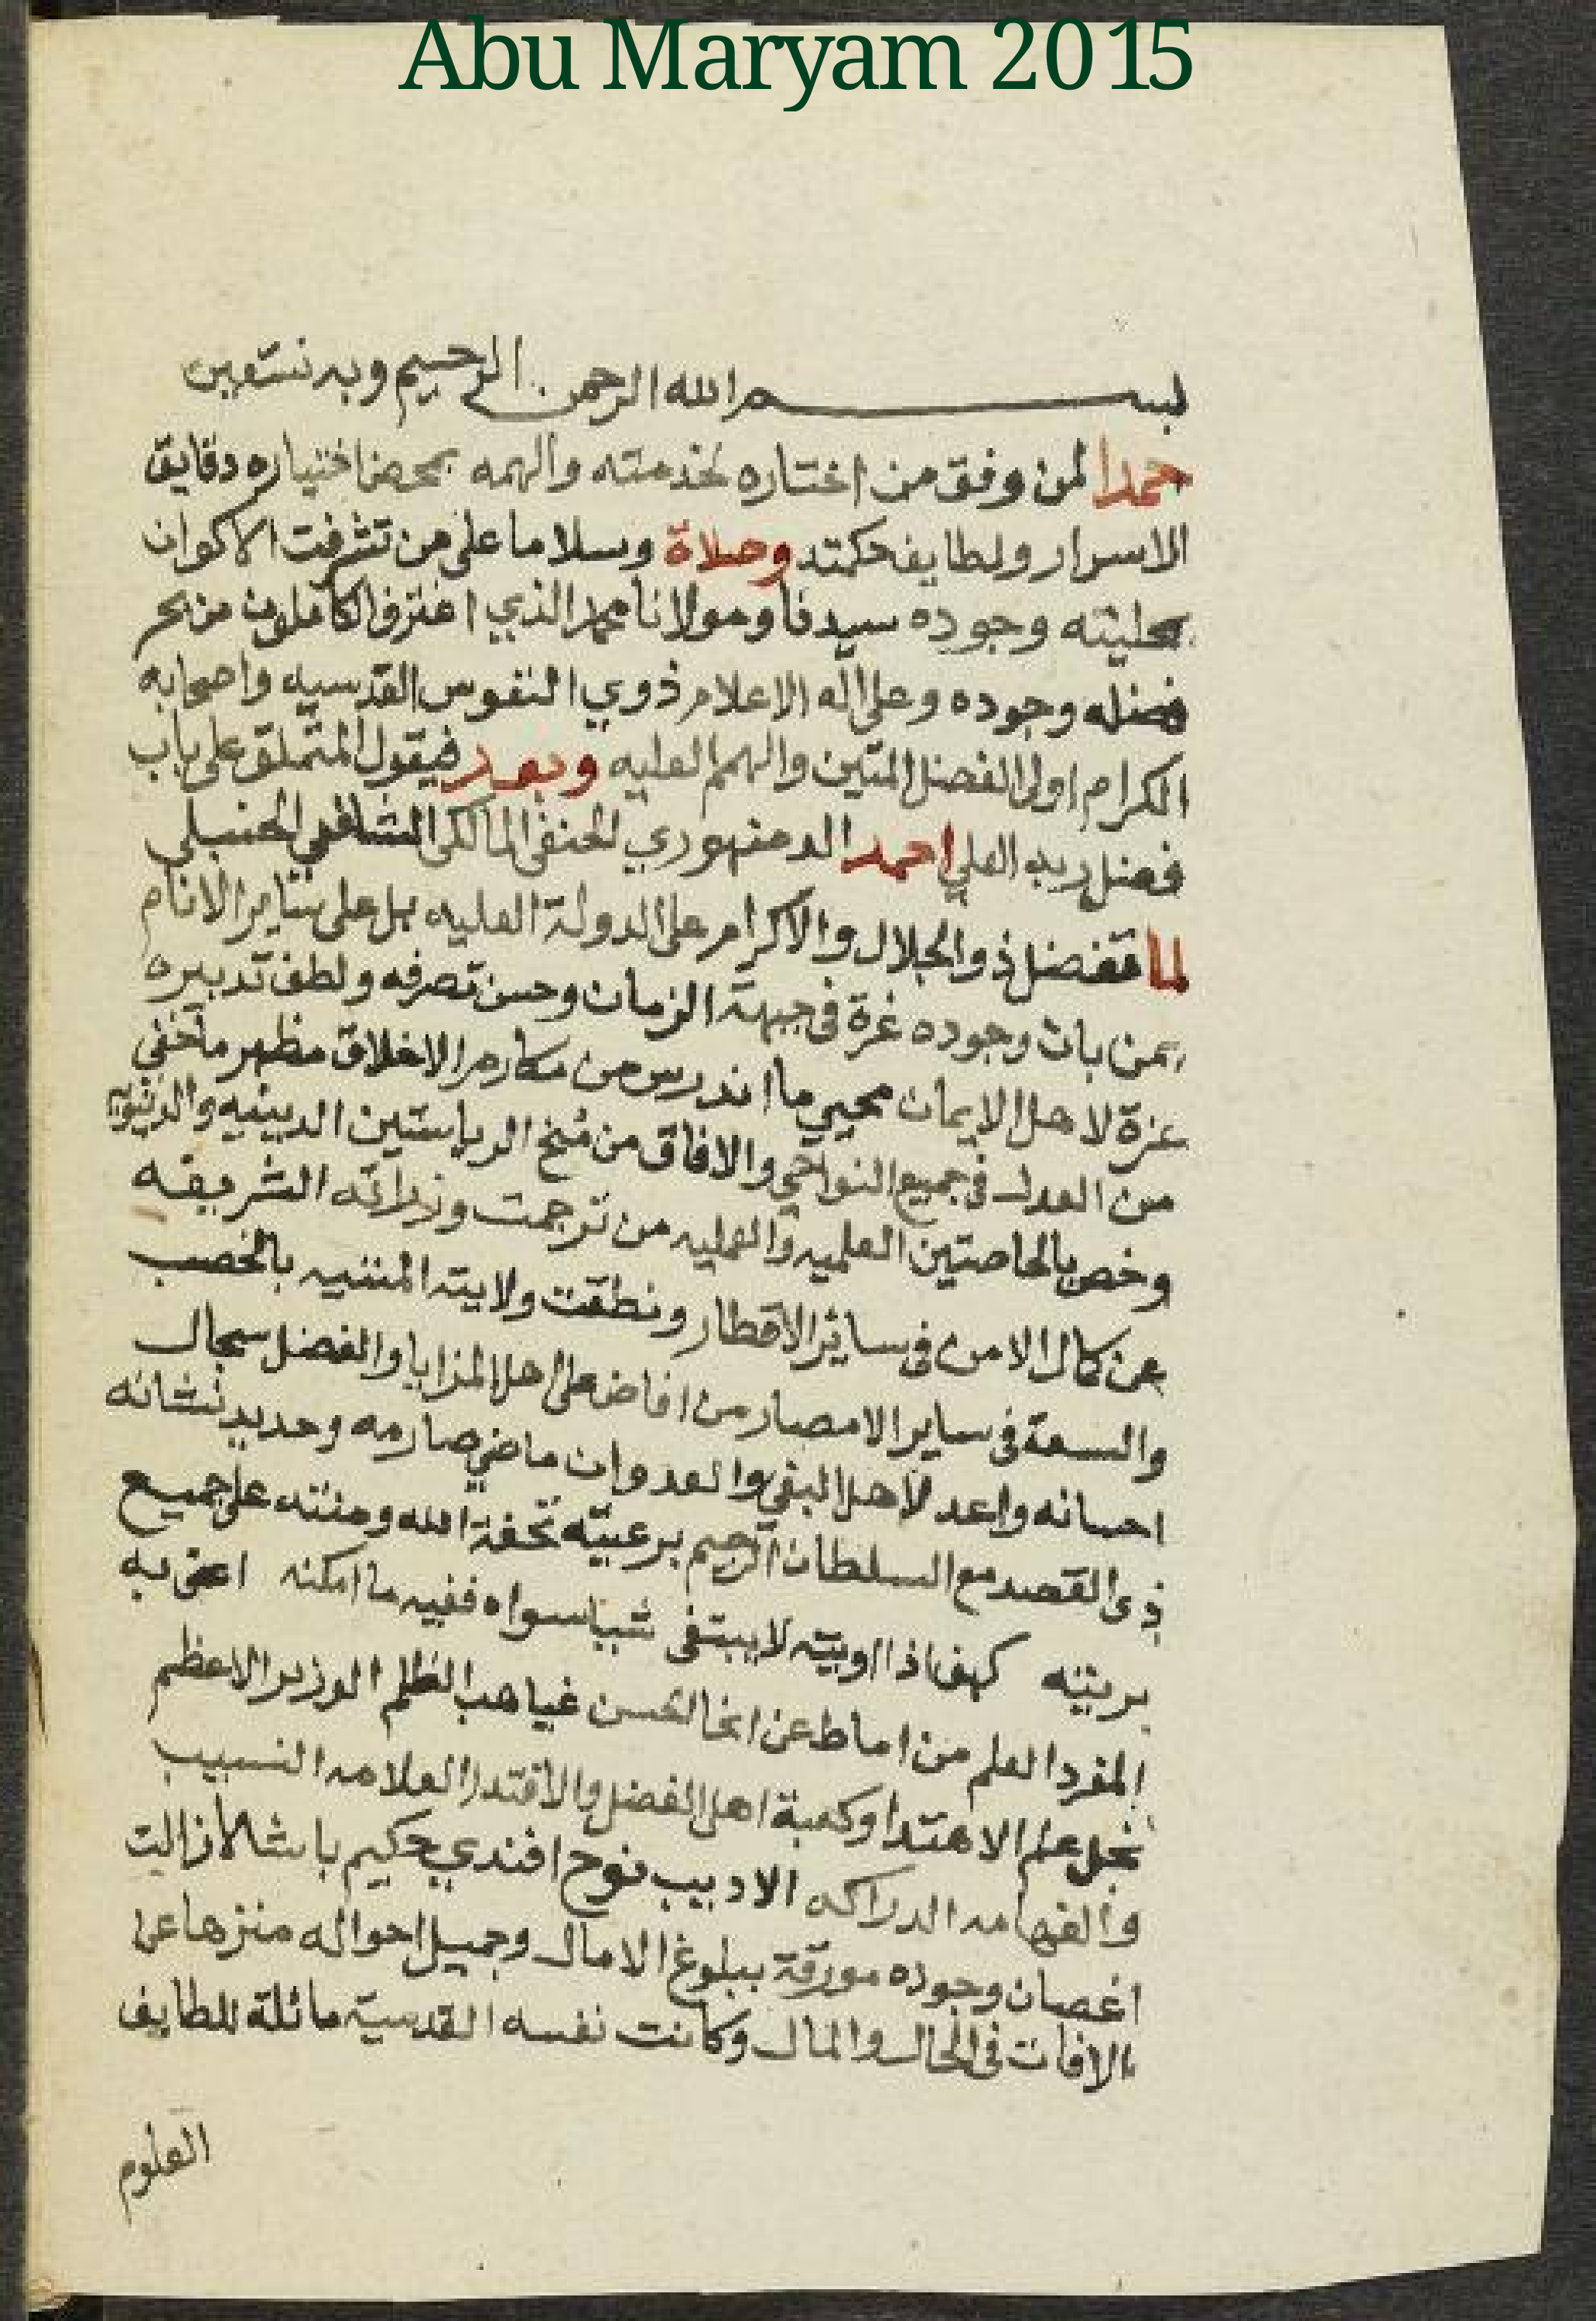 Abu Maryam 2015
بسم الله الرحمن الرحيم وبه نستعين
حمدا لمن وفق من اختاره لخدمته والهمه بمحض اختياره دقايق
الاسرار ولطايف حكمته وصلاة وسلاما على من تشرفت الاكوان
بحليته وجوده سيدنا ومولانا محمد الذي اغترف الكاملون من بحر
فضله وجوده وعلى اله الاعلام ذوي النفوس القدسيه واصحابه
الكرام اولى الفضل المتين والهمم العليه وبعد فيقول المتملق على باب
فضل ربه العلي احمد الدمنهوري الحنفى المالكى الشافعي الحنبلي
لما تفضل ذو الجلال والاكرام على الدولة العليه بل على سائر الانام
بمن بات وجوده غرة فى جبهة الزمان وحسن تصرفه ولطف تدبيره
عزة لاهل الايمان محيي ما اندرس من مكارم الاخلاق مظهر ما خفي
من العدل فى جميع النواحي والافاق من منح الرياستين الدينيه والدنيويه
وخص بالخاصتين العلميه والعمليه من ترجمت وزارته الشريفه
عن كمال الامن فى سائر الاقطار ونطقت ولايته بالخصب
والسعة فى ساير الامصار من افاض على اهل المزايا والفضل سجال
احسانه واعد لاهل البغي والعدوان ماضي صارمه وحديد نشانه
ذى القصد مع السلطان الرحيم برعيته تحفة الله ومنته على جميع
بريته كهف اذا اويته لا يبتغى شيا سواه ففيه ما امكنه اعنى به
المفرد العلم من اماط عن غياهب الظلم الوزير الاعظم
نجل علم الاهتدا وكعبة اهل الفضل والاقتدا العلامه النسيب
والفهامه الدراكه الاديب نوح افندي حكيم باشا لا زالت
اغصان وجوده مورقة ببلوغ الامال وجميل احواله منزها عن
الافات فى الحال والمال وكانت نفسه القدسية مائلة للطايف
العلوم